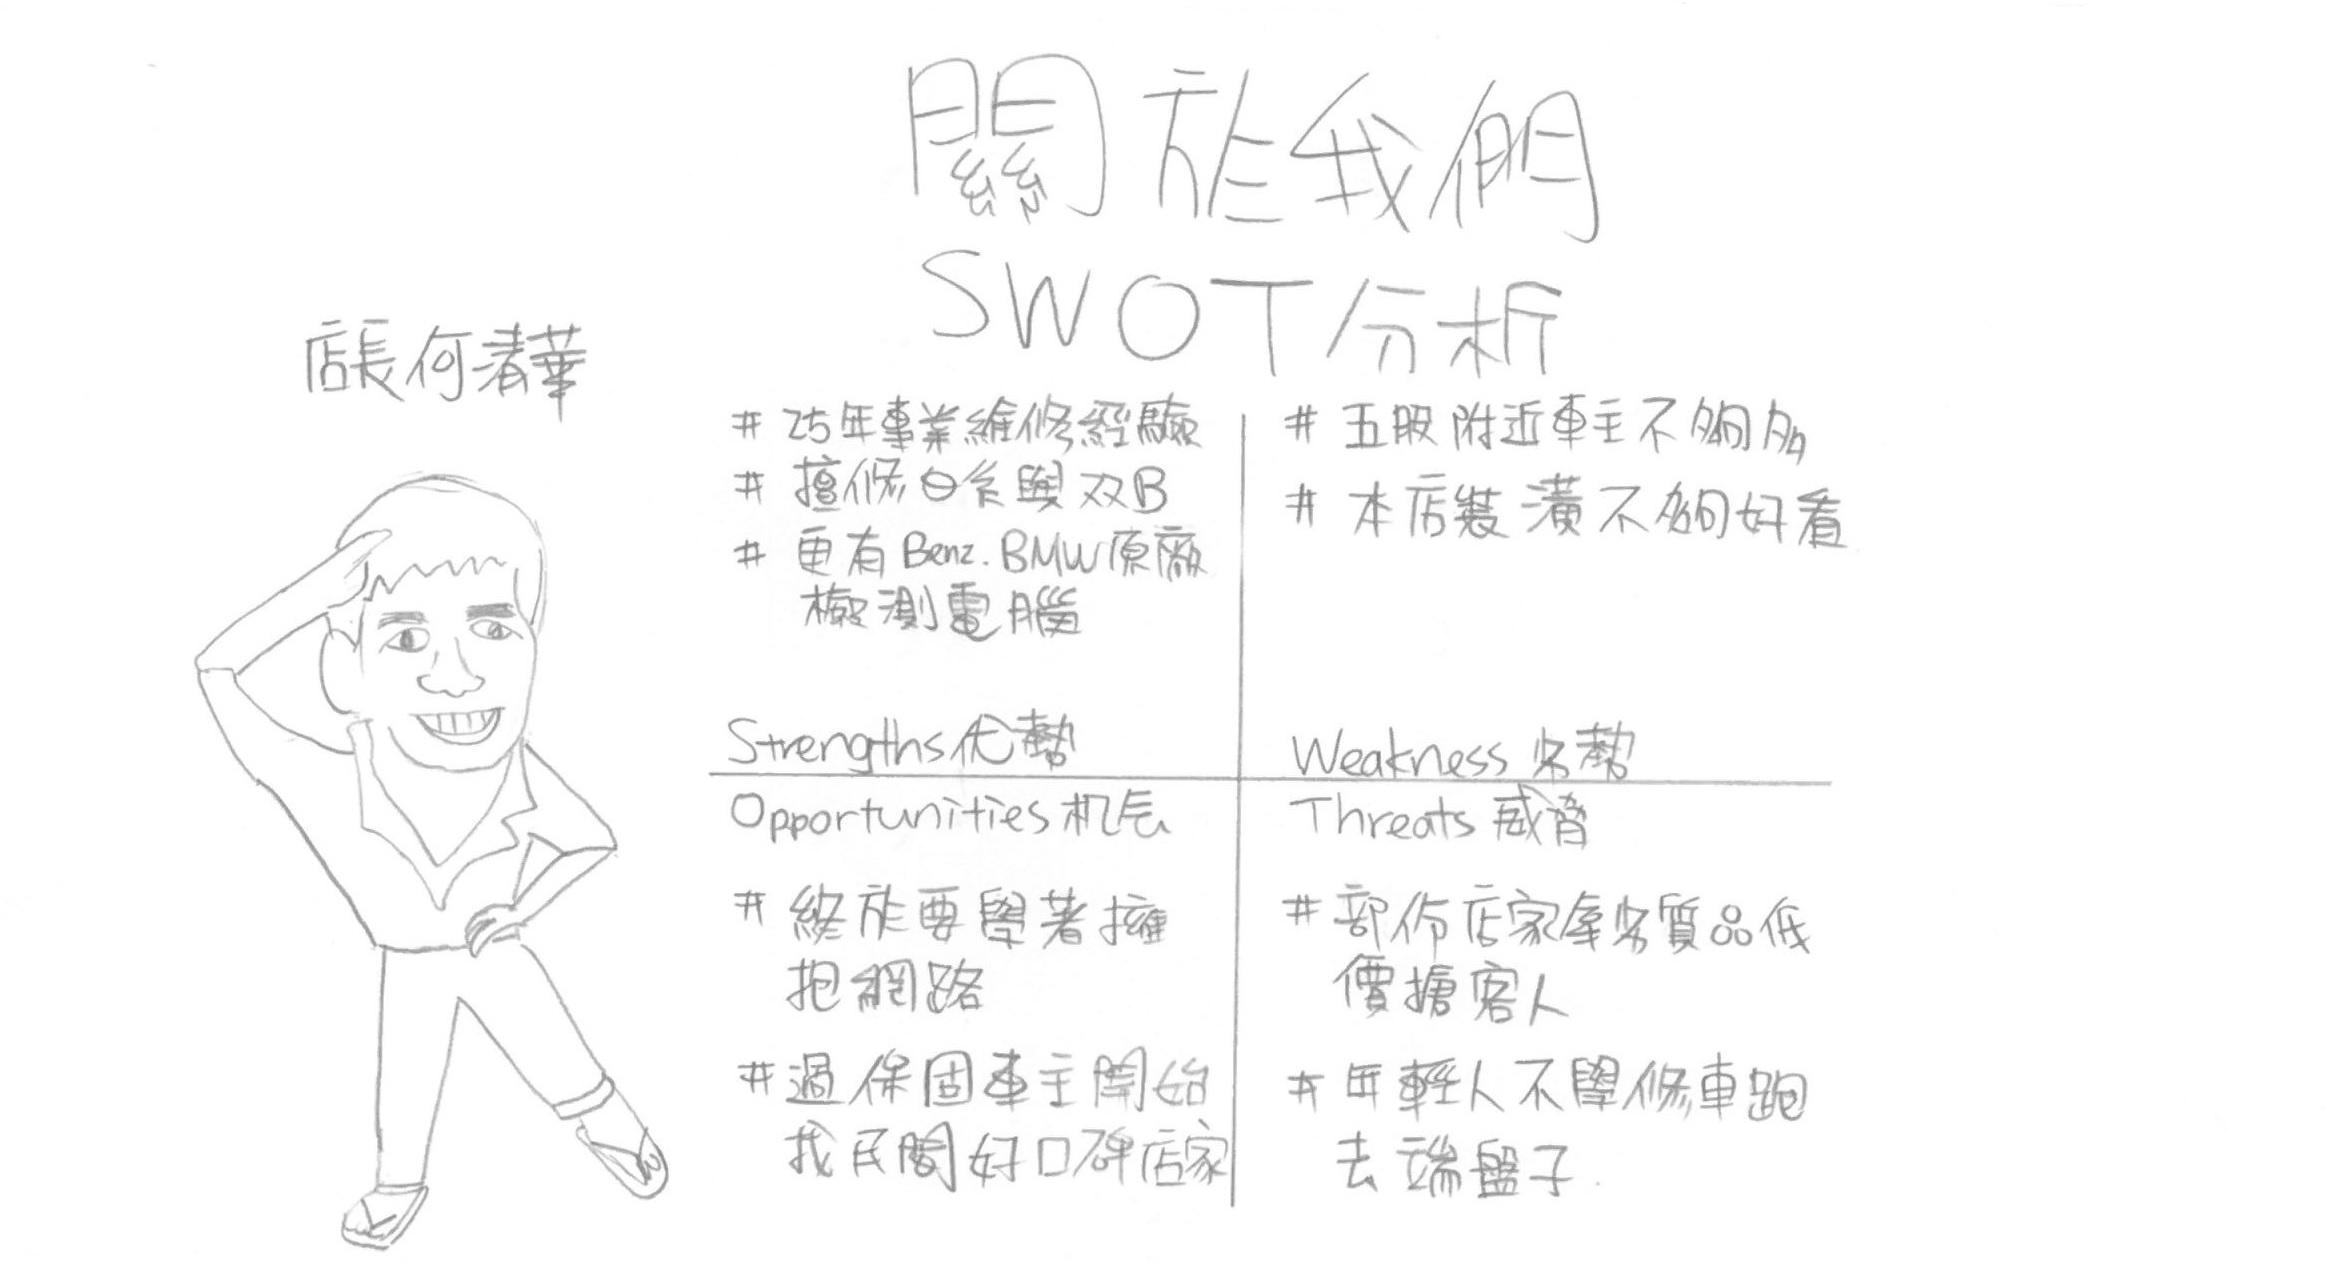 關於我們
SWOT分析
店長何清華
# 25年專業維修經驗
# 擅修日系與双B
# 更有Benz.BMW原廠
檢測電腦
Strengths优勢
# 五股附近車主不夠多
# 本店裝潢不夠好看
Weakness 劣勢
Opportunities机会
# 終於要學著擁
抱網路
# 過保固車主開始
找民間好口碑店家
Threats 威脅
# 部份店家拿劣質品低
價搪客人
# 年輕人不學修車跑
去端盤子